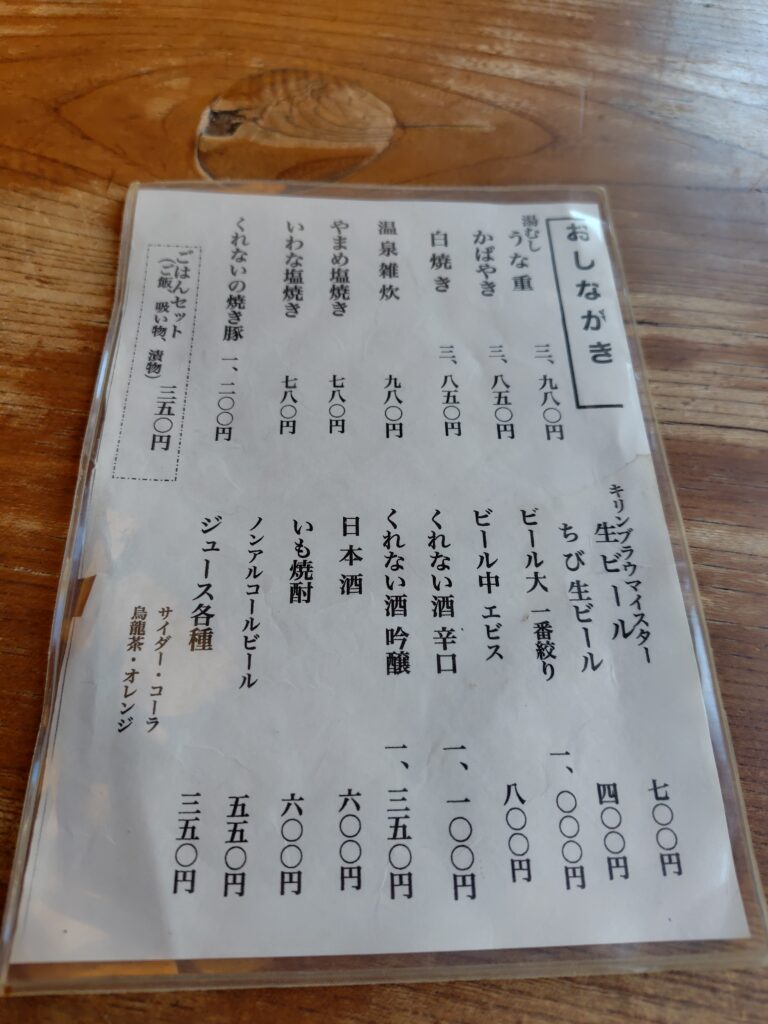 おしながき
湯むし
うな重 三、九八〇円
かばやき 三、八五〇円
白焼き 三、八五〇円
温泉雑炊 九八〇円
やまめ塩焼き 七八〇円
いわな塩焼き 七八〇円
くれないの焼き豚 一、二〇〇円
ごはんセット
(ご飯、吸い物、漬物) 三五〇円
キリンブラウマイスター
生ビール 七〇〇円
ちび生ビール 四〇〇円
ビール大 一番絞り 一、〇〇〇円
ビール中 エビス 八〇〇円
くれない酒 辛口 一、一〇〇円
くれない酒 吟醸 一、三五〇円
日本酒 六〇〇円
いも焼酎 六〇〇円
ノンアルコールビール 五五〇円
ジュース各種 三五〇円
サイダー・コーラ
烏龍茶・オレンジ